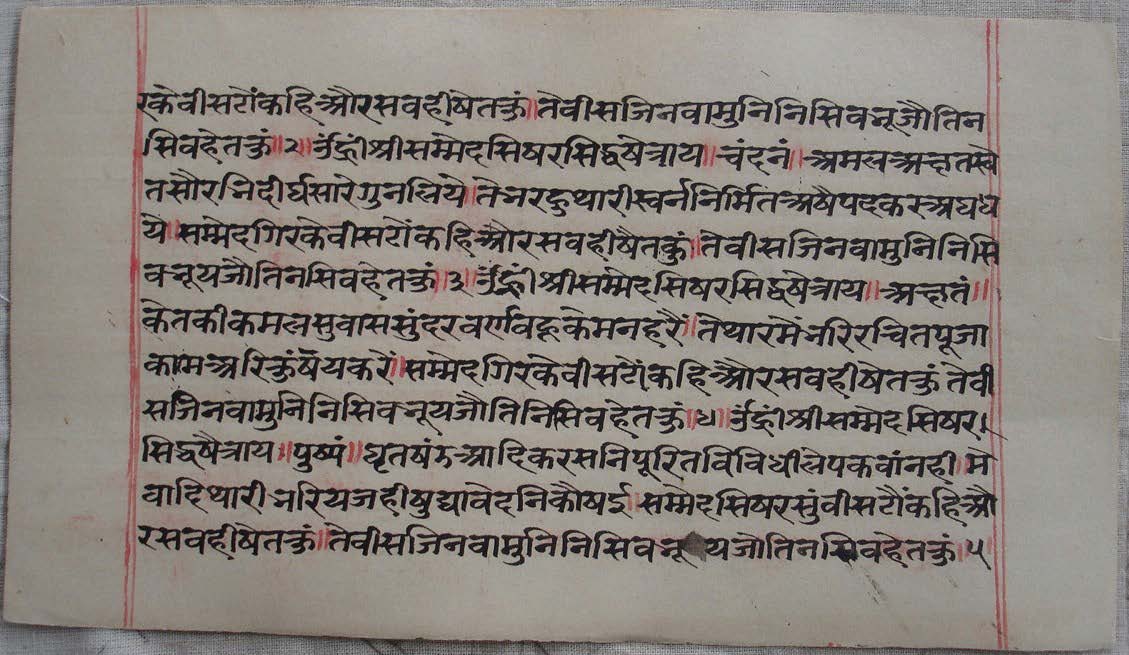 रकेवीसटोंकहिऔरसवहीषेतकुं॥तेवीसजिनवामुनिनिसिवनूजौतिन
सिवहेतकुं॥२॥उंह्रींश्रीसम्मेदसिषरसिद्धषेत्राय॥चंदनं॥अमलअक्षतस्वे
तसौरभिदीर्घसारेगुनलियै॥तेभरहुथारीस्वर्ननिर्मितअषैपदकरुअघध
यै॥सम्मेदगिरकेवीसटोंकहिऔरसवहीषैतकुं॥तेवीसजिनवामुनिनिसि
वनूयजौतिनसिवहेतकुं॥३॥उंह्रींश्रीसम्मेदसिषरसिद्धषेत्राय॥अक्षतं॥
केतकीकमलसुवाससुंदरवर्णवहुकेमनहरै॥तेथारमेंभरिरचितपूजा
कामअरिकुंषयकरें॥सम्मेदगिरकेवीसटोंकहिऔरसवहीषेतकुं॥तेवी
सजिनवामुनिनिसिवनूयजौतिनिसिवहेतकुं॥४॥उंह्रींश्रीसम्मेदसिषर।
सिद्धषैत्राय॥पुष्पं॥घृतषंडआदिकरसनिपूरितविविधीलेपकवांनही॥म
वादिथारीभरियजहीषुद्यावेदनिकौषई॥सम्मेदसिषरसुंवीसटोंकहिऔ
रसवहीषेतकुं॥तेवीसजिनवामुनिनिसिवनूयजौतिनसिवहेतकुं॥५